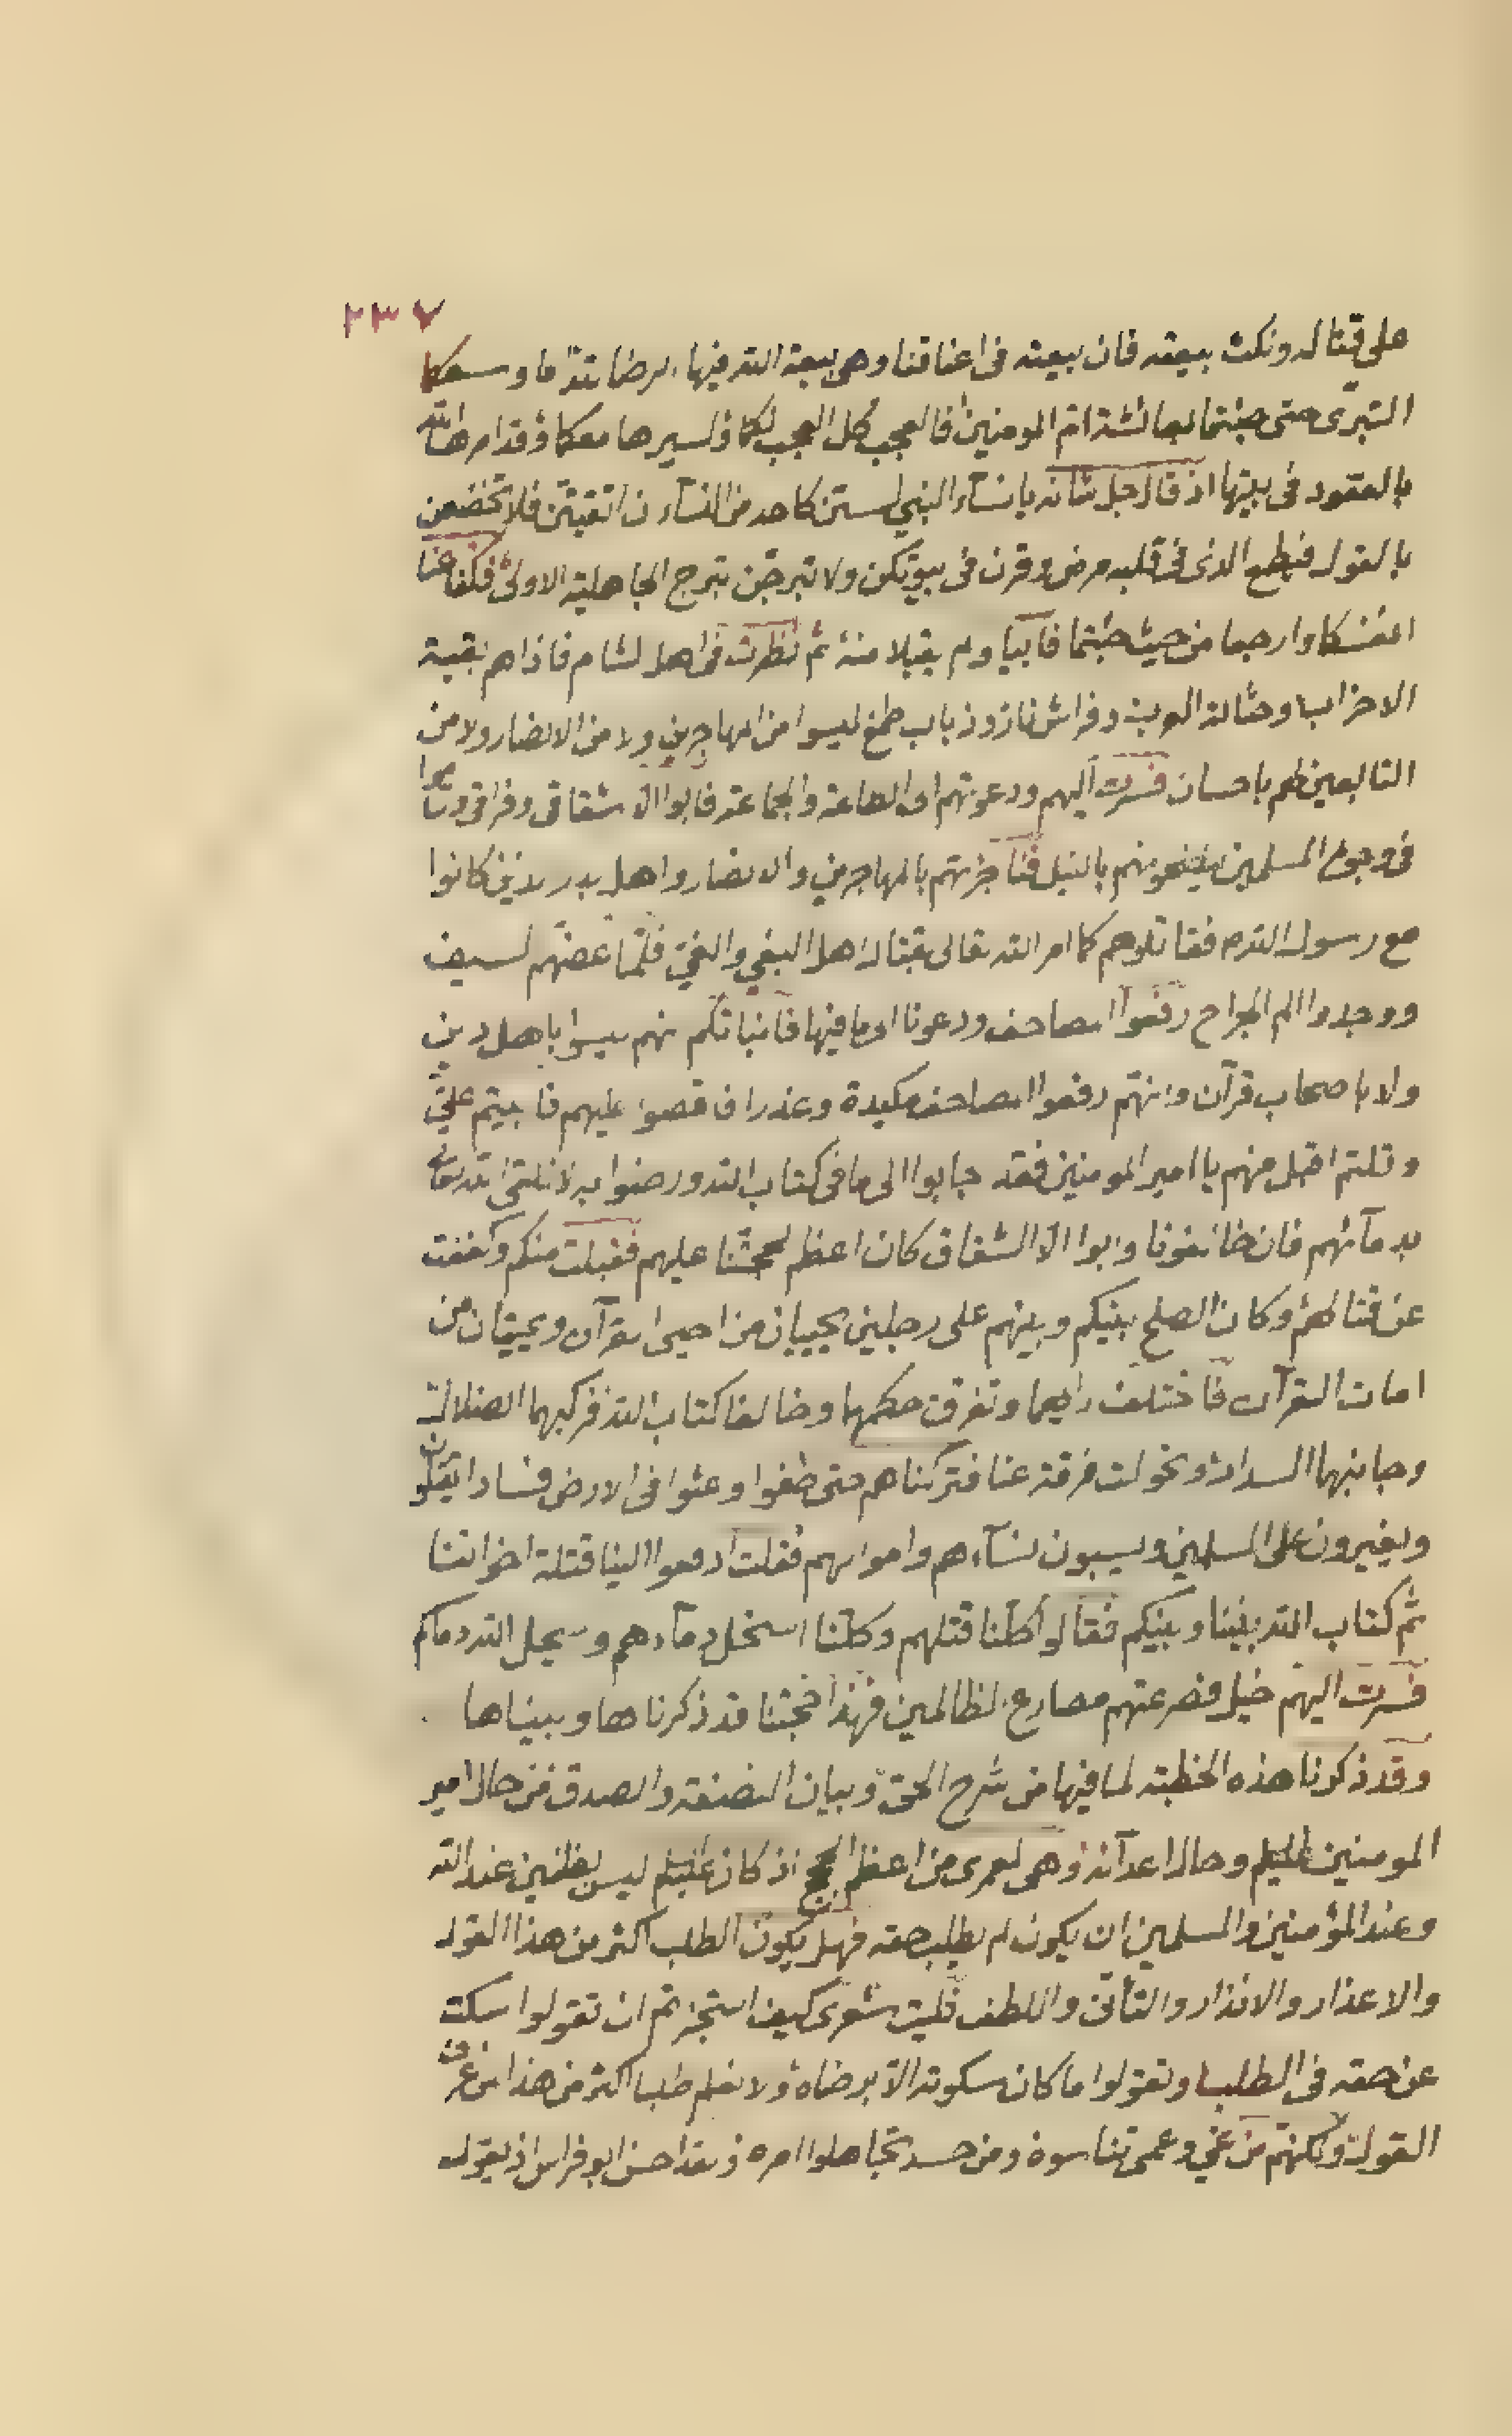 ٢٣٧
على قتاله ونكث بيعته فان بيعته فى اعناقنا وهى بيعة الله فيها الرضا تقدما وسعكما
التبرى حتى جئتما بعائشة ام المومنين فالعجب كل العجب لكما ولسيرها معكما وقد امرها الله
بالعقود فى بيتها اذ قال جل شانه يا نسآء النبي لستن كاحد من النسآء ان اتقيتن فلا تخضعن
بالقول فيطمع الذى فى قلبه مرض وقرن فى بيوتكن ولا تبرجن تبرج الجاهلية الاولى فكفا عنا
انفسكما وارجعا من حيث جئتما فابيا ولم يقبلا منه ثم نظرت فى اهل لشام فاذا هم بقية
الاحزاب وحثالة العرب وفراش نار وذباب طمع ليسوا من المهاجرين ولا من الانصار ولا من
التابعين لهم باحسان فسرت اليهم ودعوتهم الى الطاعة والجماعة فابوا الا شقاقى وفراقى وثاروا
فى وجوه المسلمين ينضحونهم بالنبل فناجزتهم بالمهاجرين والانصار واهل بدر لذين كانوا
مع رسول الله ص فقاتلوهم كما امر الله تعالى بقتال اهل البغي والغي فلما عضهم لسيف
ووجدوا الم الجراح رفعوا المصاحف ودعونا الى ما فيها فانباتكم انهم ليسوا باهل دين
ولا باصحاب قرآن وانهم رفعوا المصاحف مكيدة وغدرا فاقصوا عليهم فابيتم علي
وقلتم اقبل منهم يا امير المومنين فقد اجابوا الى ما فى كتاب الله ورضوا به لا نلقى الله تعالى
بدمآئهم فان خالفونا وابوا الا الشقاق كان اعظم لحجتنا عليهم فقبلت منكم وكففت
عن قتالهم وكان الصلح بينكم وبينهم على رجلين يحييان من احيى القرآن ويميتان من
امات القرآن فاختلف رايهما وتفرق حكمهما وخالفا كتاب الله فركبهما الضلالة
وجانبهما السداد وتحولت فرقة عنا فتركناهم حتى طغوا وعثوا فى الارض فسادا يقتلون
ويغيرون على المسلمين ويسبون نسآءهم واموالهم فقلت ادفعوا الينا قتلة اخواننا
ثم كتاب الله بيننا وبينكم فقالوا كلنا قتلهم وكلنا استحل دمآءهم وسيحل الله دماكم
فسرت اليهم خيل فصرعتهم مصارع لظالمين فهذا حجتنا قد ذكرناها وبيناها
وقد ذكرنا هذه الخطبة لما فيها من شرح الحق وبيان النصفة والصدق من حال امير
المومنين عليلم وحال اعدآئه وهى لعمرى من اعظم الحجج اذ كان عليلم ليس بظنين عند الله
وعند المؤمنين والمسلمين ان يكون لم يطلب حقه فهل يكون الطلب اكثر من هذا القول
والاعذار والانذار والتأنى واللطف فليت شعرى كيف استجزتم ان تقولوا سكت
عن حقه فى الطلب وتقولوا ما كان سكوته الا برضاه ولا نعلم طلبا اكثر من هذا من عرف
القول ولكنهم من غي وعمى تناسوه ومن حسد تجاهلوا امره ولقد احسن ابو فراس اذ يقول